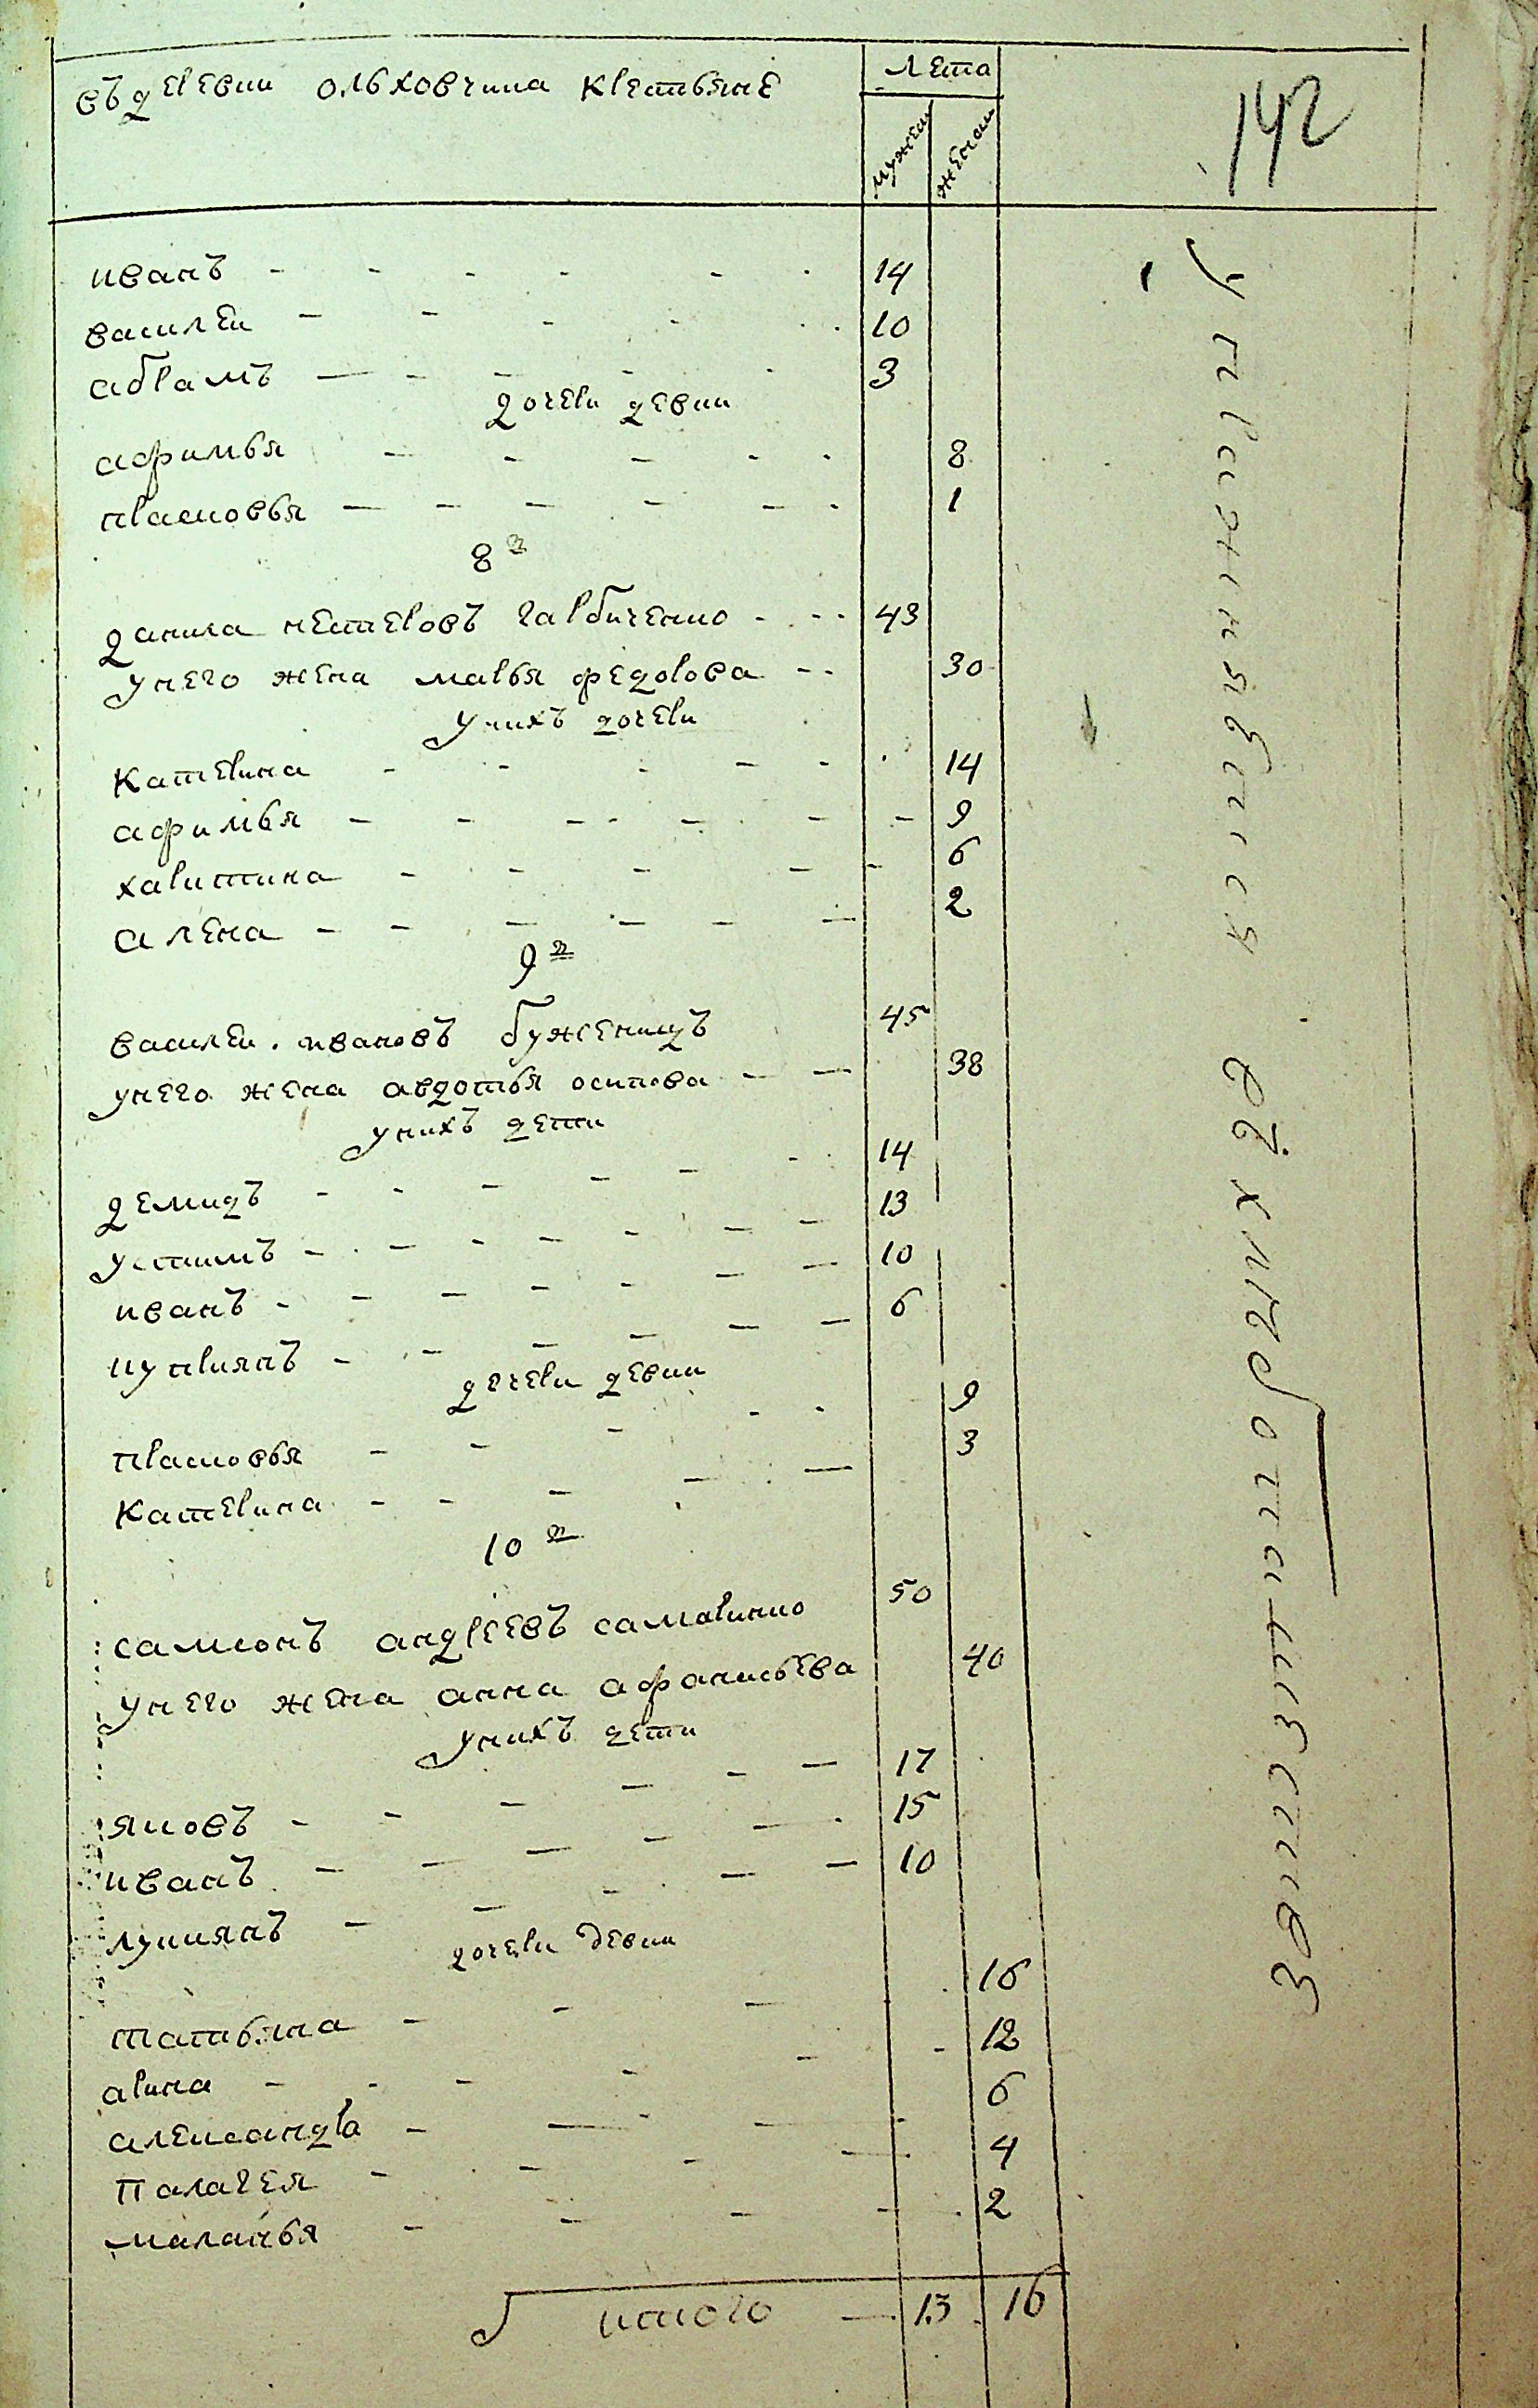 въ деревни ольховчика крестьяне
лета
мужеск
женск
142
иванъ 14
василеи 10
абрамъ 3
дочери девки
афимья 8
прасковья 1
8 й
данила нестеровъ гарбиченко 43
унего жена марья федорова 30
унихъ дочери
катерина 14
афимья 9
харитина 6
алена 2
9 й
василеи ивановъ буженицъ 45
унего жена авдотья осипова 38
унихъ дети
демидъ 14
устимъ 13
иванъ 10
куприянъ 6
дочери девки
прасковья 9
катерина 3
10 й
самсонъ андреевъ самарикко 50
унего жена анна афанисьева 40
унихъ дети
яковъ 17
иванъ 15
лукиянъ 10
дочери девки
татьяна 16
арина 12
александра 6
палагея 4
маланья 2
итого 13 16